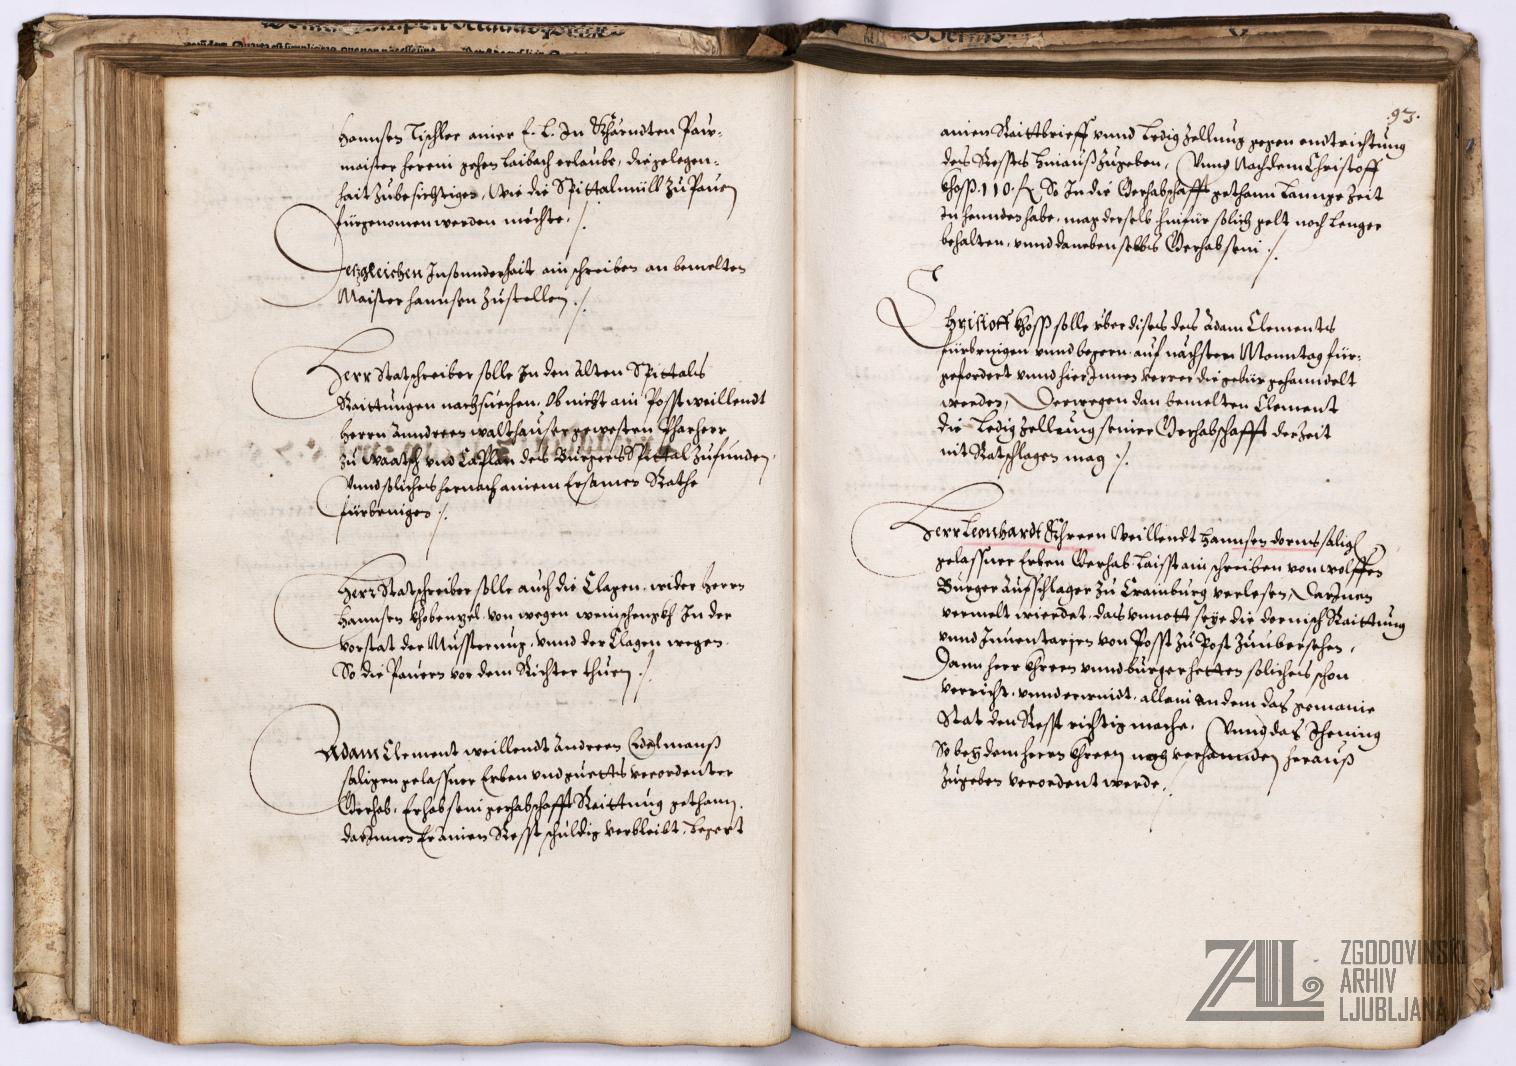 Hannsen Tischler ainer E. L. In Khärndten Paw-
maister herein gehen Laibach erlaube, die gelegen-
hait zu besichtigen, Wie die Spittalmüll zu Pauen
fürgenomen werden möchte ./.
Detzgleichen Insonnderhait ain schreiben an bemelten
Maister Hannsen zustellen ./.
Herr Statschreiber solle In den Alten Spittals
Raittungen nachsuechen, Ob nicht ain Posst weillendt
herrn Anndreen gewesten Pharherr
zu und Caplan des Burgers Spittal zufunden,
Vnnd soliches hernach ainem Ersamen Rathe
fürbringen ./.
Herr Statschreiber solle auch die Clagen, wider Herrn
Hannsen von wegen In der
vorstat der Mussterung, vnnd der Clagen wegen
So die Pauern vor dem Richter thuen ./.
Adam Clement weillendt Andreen Edelmanß
saligen gelassner Erben vnd guetts verordenter
Gerhab, Er hab sein gerhabschafft Raittung gethann,
darInnen Er ainen Resst schuldig verbleibt, begert
93.
ainen Raittbrieff vnnd Ledigzellung gegen endtrichtung
des Ressts hinauß zugeben, Vnnd Nachdem Christoff
Khoss 110 f. So In die Gerhabschafft gethann Lannge Zeit
In hennden habe, mag derselb hinfür solich gelt noch Lenger
behalten, vnnd daneben selbs Gerhab sein ./.
Christoff Khoss solle über dises des Adam Clements
fürbringen vnnd begern, auf nächsten Monntag für-
gefordert vnnd hierInnen verrer die gebür gehanndelt
werden, Derwegen dan bemelten Clement
die Ledigzellung seiner Gerhabschafft der Zeit
nit Ratschlagen mag ./.
Herr Leonhardt Khreen Weillendt Hannsen dorns salig
gelassner Erben Gerhab, Laisst ain schreiben von Wolffen
Burger Aufschlager zu Crainburg verlesen, DarInen
vermelt wierdet, das vnnott seye die dornisch Raittung
vnnd Inuentarien von Posst zu Post zuuberschen,
Dann herr Khreen vnnd burger hetten soliches schon
verricht, vnnd allain an dem das gemaine
Stat den Resst richtig mache, Vnnd das Ihening
So bey dem herrn Khreen noch verhannden herauß
zugeben verordent werde ./.
ZAL
ZGODOVINSKI
ARHIV
LJUBLJANA